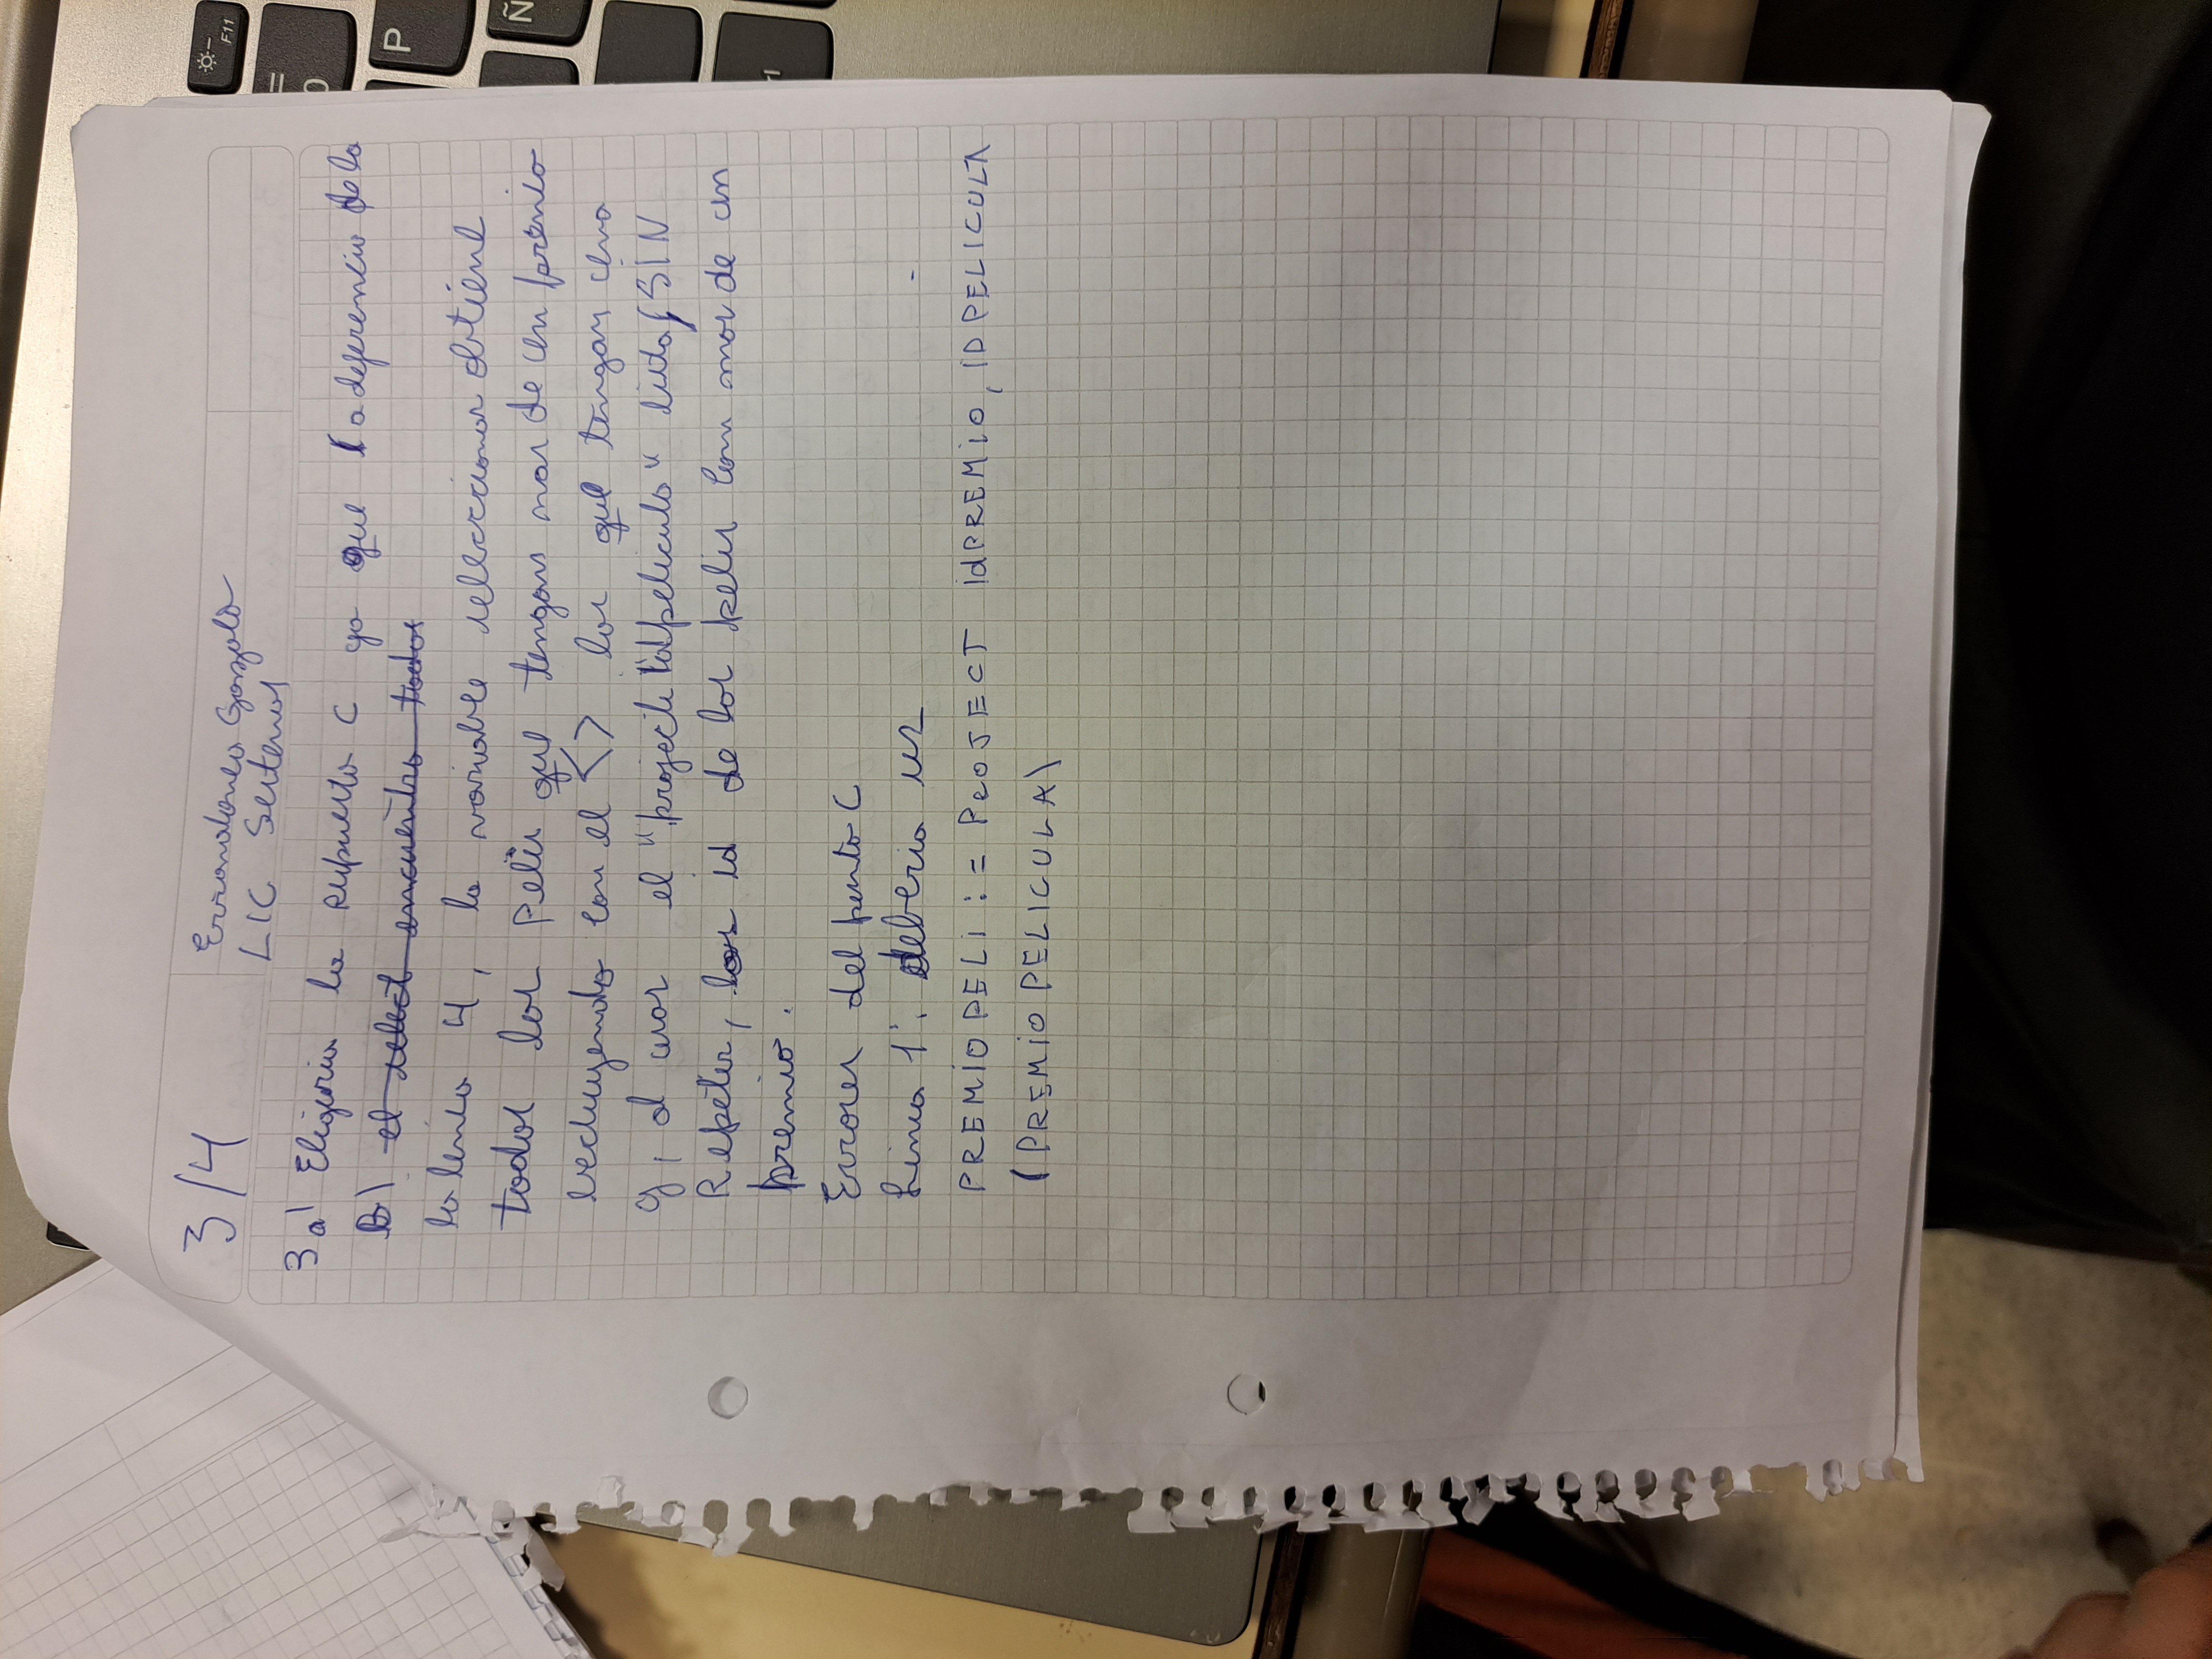 3/4
Errondonea Gonzalo
LIC Sistemas
3 a) Eligiria la respuesta C ya que a diferencia de la
B) el select encuentra todos
la linea 4, la variable seleccionar obtiene
todos las Pelis que tengan mas de un premio
excluyendo con el <> las que tengan una
y, al usar el "project idpelicula" lista, SIN
Repetir, los id de las pelis con mas de un
premio.
Errores del punto C
Linea 1: deberia
PREMIOPELI := PROJECT idPREMIO, IDPELICULA
(PREMIOPELICULA)
F11
=
0
P
Ñ